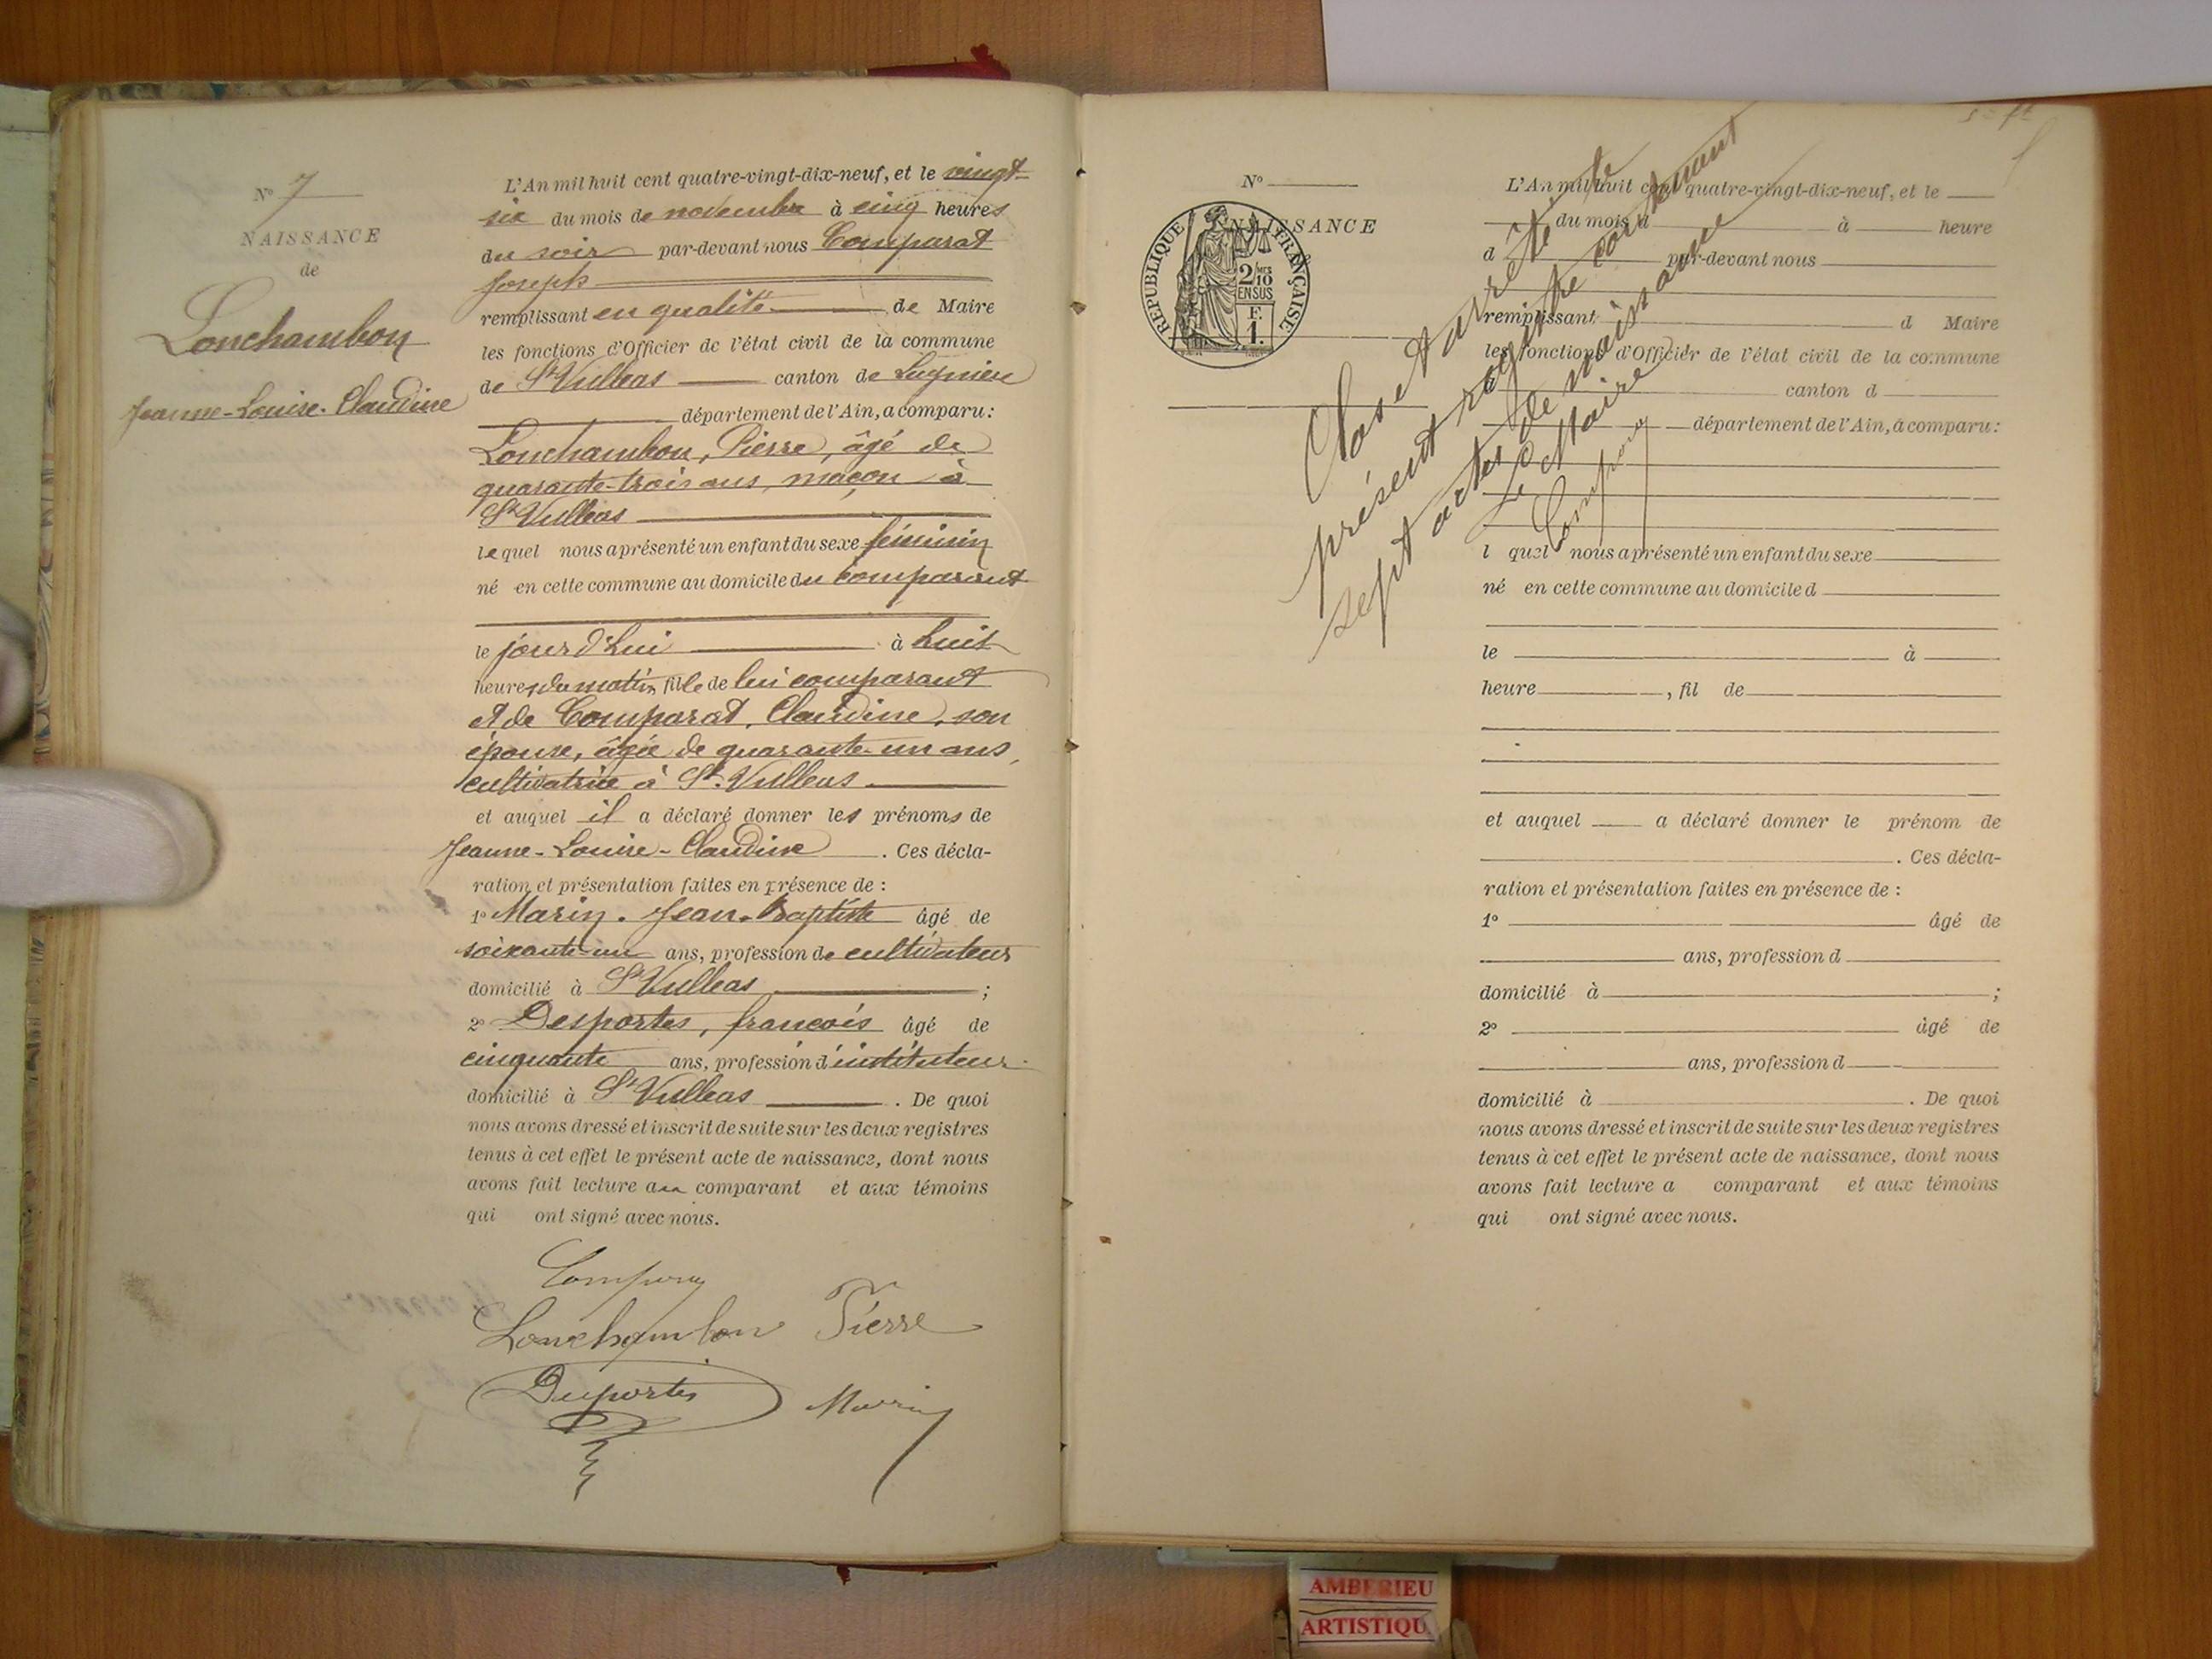 N° 7
NAISSANCE
de
Lonchambon
Jeanne-Louise-Claudine
L'An mil huit cent quatre-vingt-dix-neuf, et le vingt-
six du mois de novembre à cinq heures
du soir par-devant nous Comparat
Joseph
remplissant en qualité de Maire
les fonctions d'Officier de l'état civil de la commune
de St Vulbas canton de Lagnieu
département de l'Ain, a comparu:
Lonchambon, Pierre, âgé de
quarante-trois ans, maçon à
St Vulbas
lequel nous a présenté un enfant du sexe féminin
né en cette commune au domicile du comparant
le jourd'hui à huit
heures du matin, fille de lui comparant
et de Comparat, Claudine, son
épouse, âgée de quarante-un ans,
cultivatrice à St Vulbas
et auquel il a déclaré donner les prénoms de
Jeanne-Louise-Claudine. Ces décla-
ration et présentation faites en présence de :
1° Marin, Jean-Baptiste âgé de
soixante-un ans, profession de cultivateur
domicilié à St Vulbas ;
2° Desportes, françois âgé de
cinquante ans, profession d'instituteur
domicilié à St Vulbas. De quoi
nous avons dressé et inscrit de suite sur les deux registres
tenus à cet effet le présent acte de naissance, dont nous
avons fait lecture au comparant et aux témoins
qui ont signé avec nous.
Lonchambon Pierre
Desportes Marin
N°
NAISSANCE
RÉPUBLIQUE FRANÇAISE
2/10 MES
EN SUS
F.
1.
L'An mil huit cent quatre-vingt-dix-neuf, et le
du mois d à heure
d par-devant nous
remplissant d Maire
les fonctions d'Officier de l'état civil de la commune
canton d
département de l'Ain, a comparu:
l quel nous a présenté un enfant du sexe
né en cette commune au domicile d
le à
heure , fil de
et auquel a déclaré donner le prénom de
. Ces décla-
ration et présentation faites en présence de :
1° âgé de
ans, profession d
domicilié à ;
2° âgé de
ans, profession d
domicilié à . De quoi
nous avons dressé et inscrit de suite sur les deux registres
tenus à cet effet le présent acte de naissance, dont nous
avons fait lecture a comparant et aux témoins
qui ont signé avec nous.
Clos et arrêté le
présent registre contenant
sept actes de naissance
Le Maire
AMBERIEU
ARTISTIQU